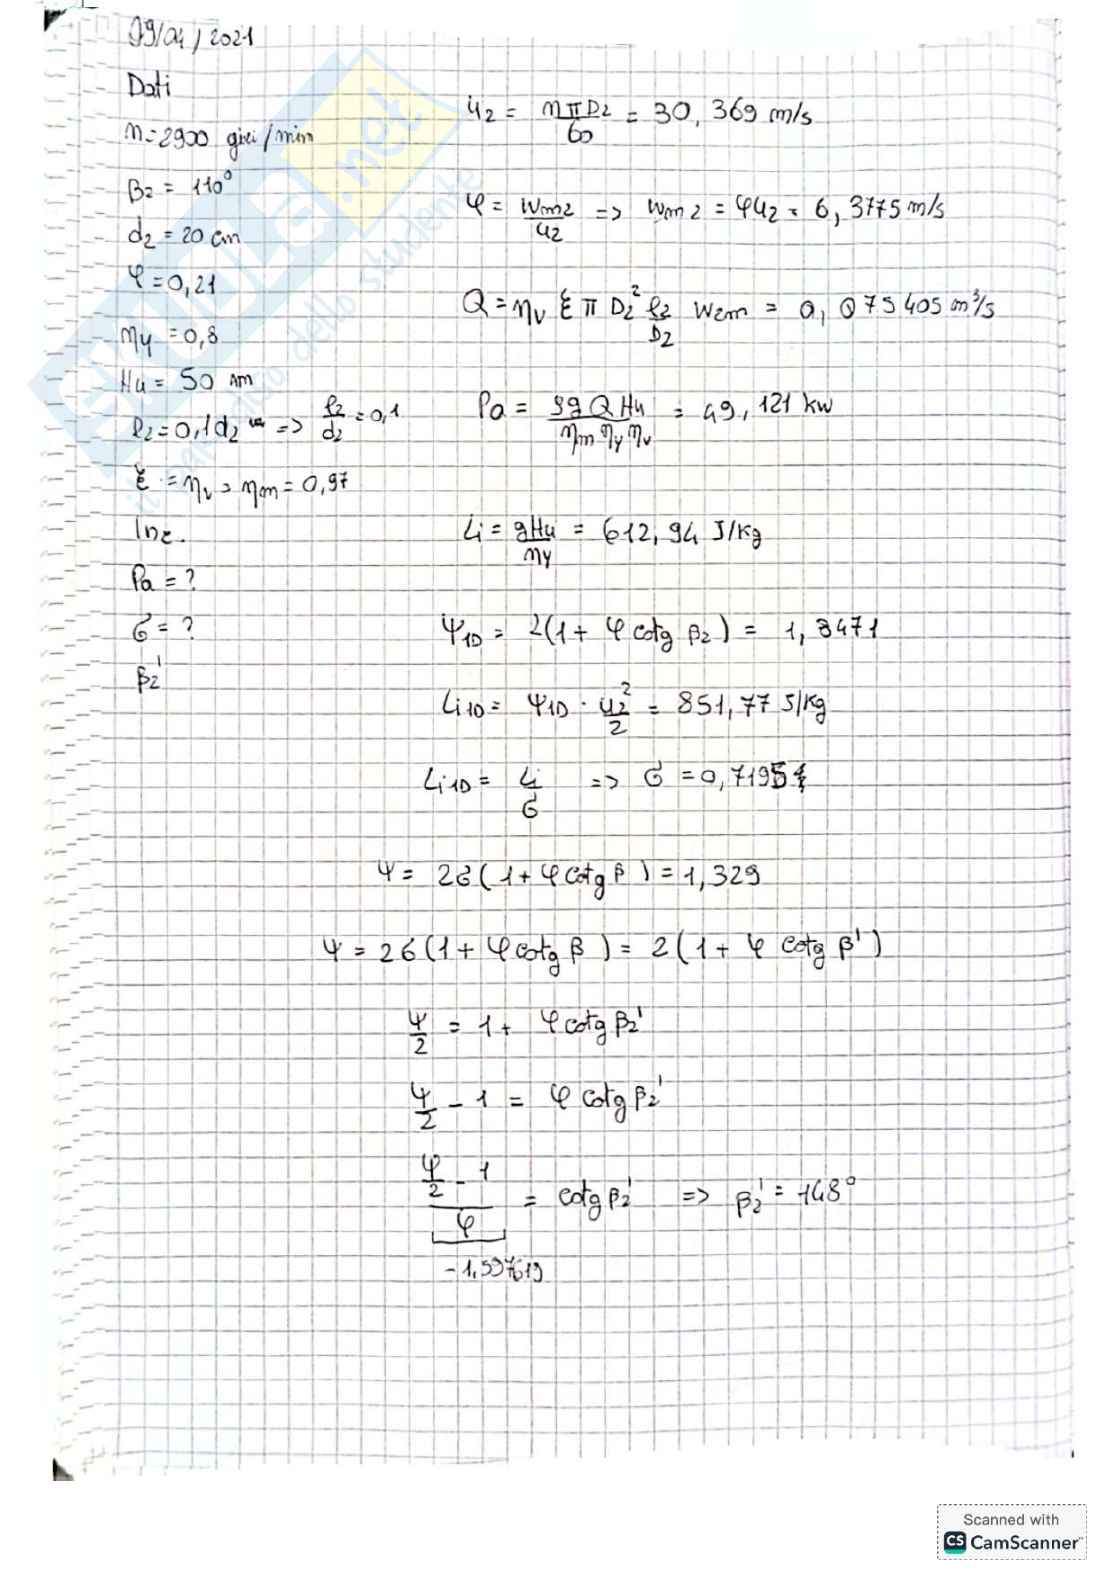 09/04/2021
Dati
n=2900 giri/min
β₂ = 110°
d₂ = 20 cm
φ=0,21
ηy =0,8
Hu = 50 m
l₂=0,1d₂ => l₂/d₂=0,1
ξ =ηv = ηm=0,97
Inc.
Pa = ?
σ = ?
β₂'
u₂ = nπD₂/60 = 30,369 m/s
φ = wm2/u₂ => wm2 = φu₂ = 6,3775 m/s
Q = ηv ξ π D₂² l₂/D₂ w2m = 0,075405 m³/s
Pa = ρgQHu/ηm ηy ηv = 49,121 kW
Li = gHu/ηy = 612,94 J/kg
Ψ1D = 2(1+ φ cotg β₂) = 1,8471
Li1D = Ψ1D · u₂²/2 = 851,77 J/kg
Li1D = Li/σ => σ =0,7195
Ψ = 2σ(1+φcotg β) =1,329
Ψ = 2σ(1+φcotg β) = 2(1+ φ cotg β')
Ψ/2 = 1+ φcotg β₂'
Ψ/2 - 1 = φ cotg β₂'
(Ψ/2 - 1)/φ = cotg β₂' => β₂' = 148°
-1,597619
il paradiso dello studente
skuola.net
Scanned with
CS CamScanner